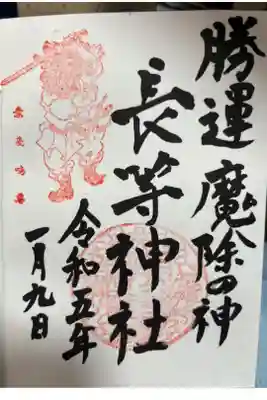 勝運 魔除の神
長等神社
令和五年
一月九日